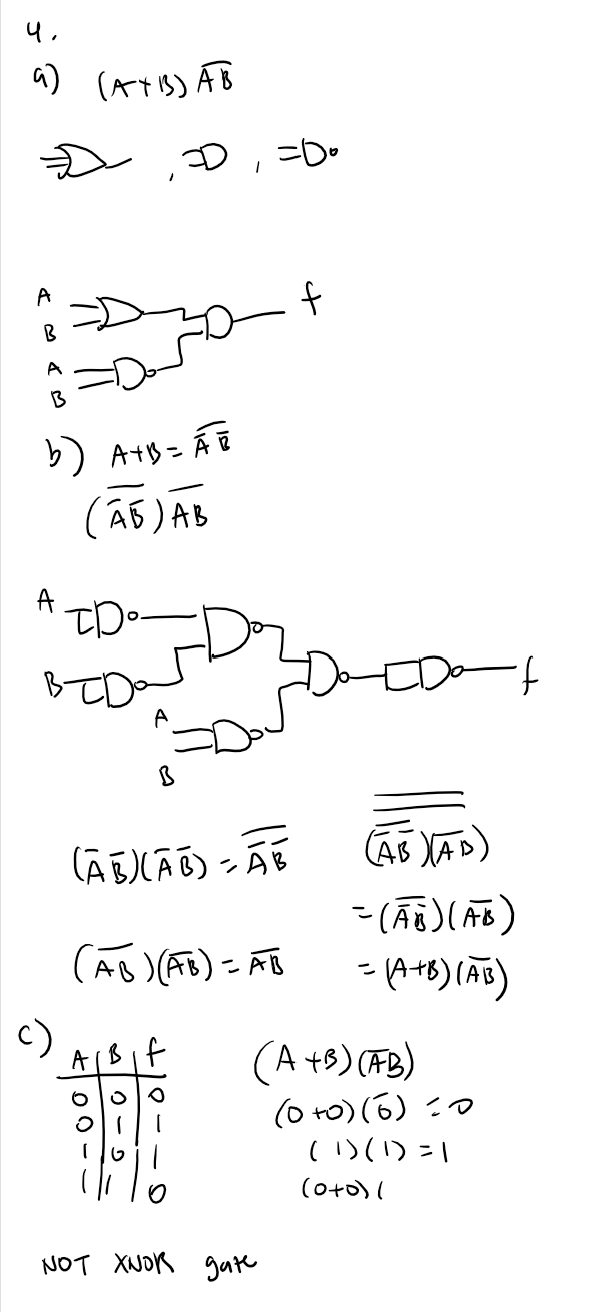 4.
a) (A+B) A̅B̅
A
B
f
A
B
b) A+B = \overline{A̅ B̅}
(\overline{A̅B̅}) \overline{AB}
A
B
A
B
f
(A̅ B̅)(A̅ B̅) = \overline{A̅ B̅}
\overline{\overline{(\overline{A̅B̅})(\overline{AB})}}
= (\overline{A̅B̅})(\overline{AB})
(\overline{AB})(\overline{AB}) = \overline{AB}
= (A+B)(\overline{AB})
c)
A B f
0 0 0
0 1 1
1 0 1
1 1 0
(A+B)(\overline{AB})
(0+0)(\overline{0}) = 0
(1)(1) = 1
(0+0)(
NOT XNOR gate